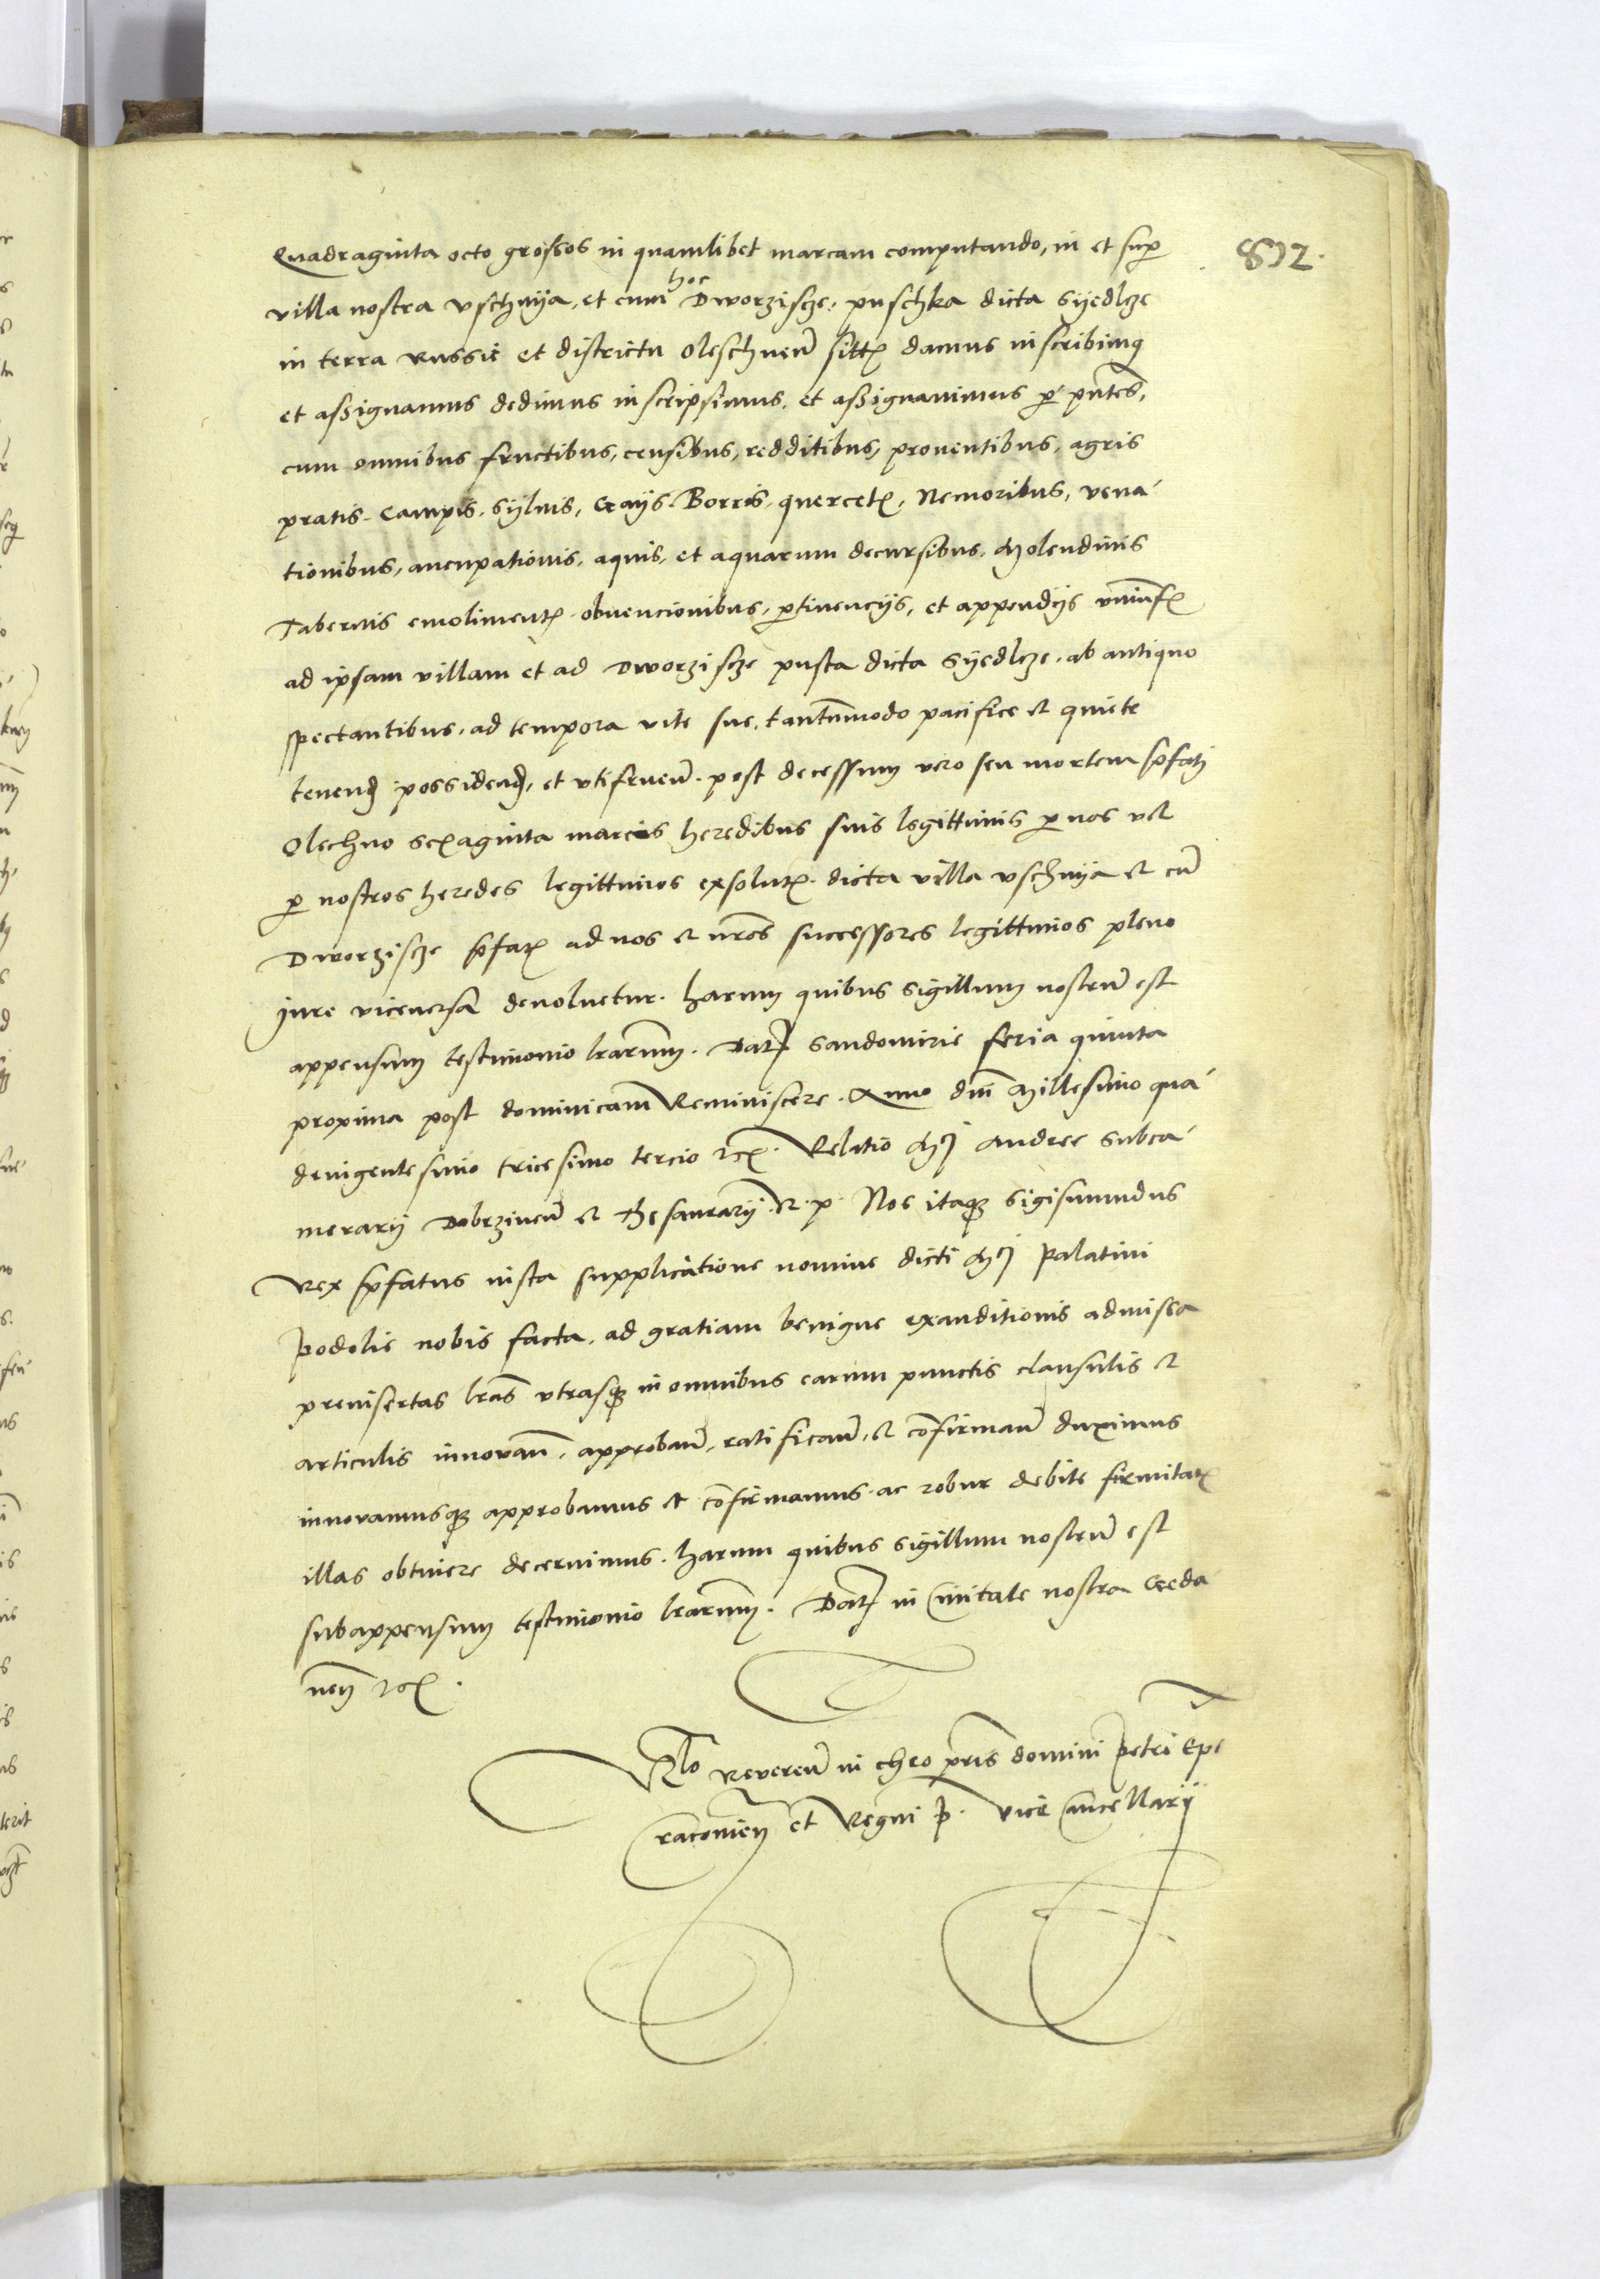 852.
Quadraginta octo grossos in quamlibet marcam computando, in et sup
villa nostra vschnija, et cum hoc Dworziscze, puschka dicta Syedlcze
in terra Russie et districtu Oleschnen sitt damus inscribimq
et assignamus dedimus inscripsimus, et assignavimus p pntes,
cum omnibus fructibus, censibus, redditibus, proventibus, agris
pratis. Campis. Syluis, Gayis. Borris. quercet, Nemoribus, vena
tionibus, aucupationis, aquis, et aquarum decursibus, Molendinis
Tabernis emoliment. obuencionibus, ptinencijs, et appendijs vniuss
ad ipsam villam et ad Dworziscze pusta dicta Syedlcze. ab antiquo
spectantibus. ad tempora vite sue, tantummodo pacifice et quiete
tenend possidend, et vtifruen. post decessum vero seu mortem pfati
Olechno sexaginta marcis heredibus suis legittimis p nos vel
p nostros heredes legittimos exsolut. dicta villa vschnija et cu
Dworziscze pfat ad nos et nros successores legittimos pleno
jure viceversa devoluetur. harum quibus sigillum nostru est
appensum testimonio lrarum. Dat Sandomirie feria quinta
proxima post dominicam Reminiscere. Anno dni Millesimo qua
dringentesimo tricesimo tercio etc. Relatio Mci Andree Subca
merarij Dobrzinen et Thesaurarij R. p. Nos itaq Sigismundus
Rex pfatus iusta supplicatione nomine dicti Mci Palatini
Podolie nobis facta. ad gratiam benigne exauditionis admissa
preinsertas lras vtrasq in omnibus earum punctis clausulis et
articulis innovan. approban. ratifican. et confirman duximus
innovamusq approbamus et confirmamus. ac robur debite firmitat
illas obtinere decernimus. harum quibus sigillum nostru est
subappensum testimonio lrarum. Dat in Civitate nostra Geda
nen etc.
Rlo Reveren in chro pris domini Petri Epi
Cracovien et Regni P. Vice Cancellarij